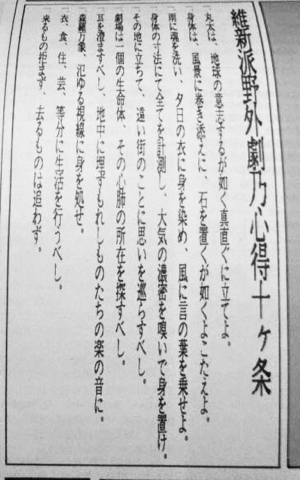 維新派野外劇乃心得十一ヶ条
一丸太は、地球の意志するが如く真直ぐに立てよ。
身体は、風景に巻き添えに、石を置くが如くよこたえよ。
雨に魂を洗い、夕日の衣に身を染め、風に言の葉を乗せよ。
身体の寸法にて全てを計測し、大気の濃密を嗅いで身を置け。
その地に立ちて、遠い街のことに思いを巡らすべし。
劇場は一個の生命体、その心肺の所在を探すべし。
耳を澄ますべし、地中に埋すもれしものたちの楽の音に。
一森羅万象、氾ゆる視線に身を処せ。
一衣、食、住、芸、等分に生活を行うべし。
一来るもの拒まず、去るものは追わず。